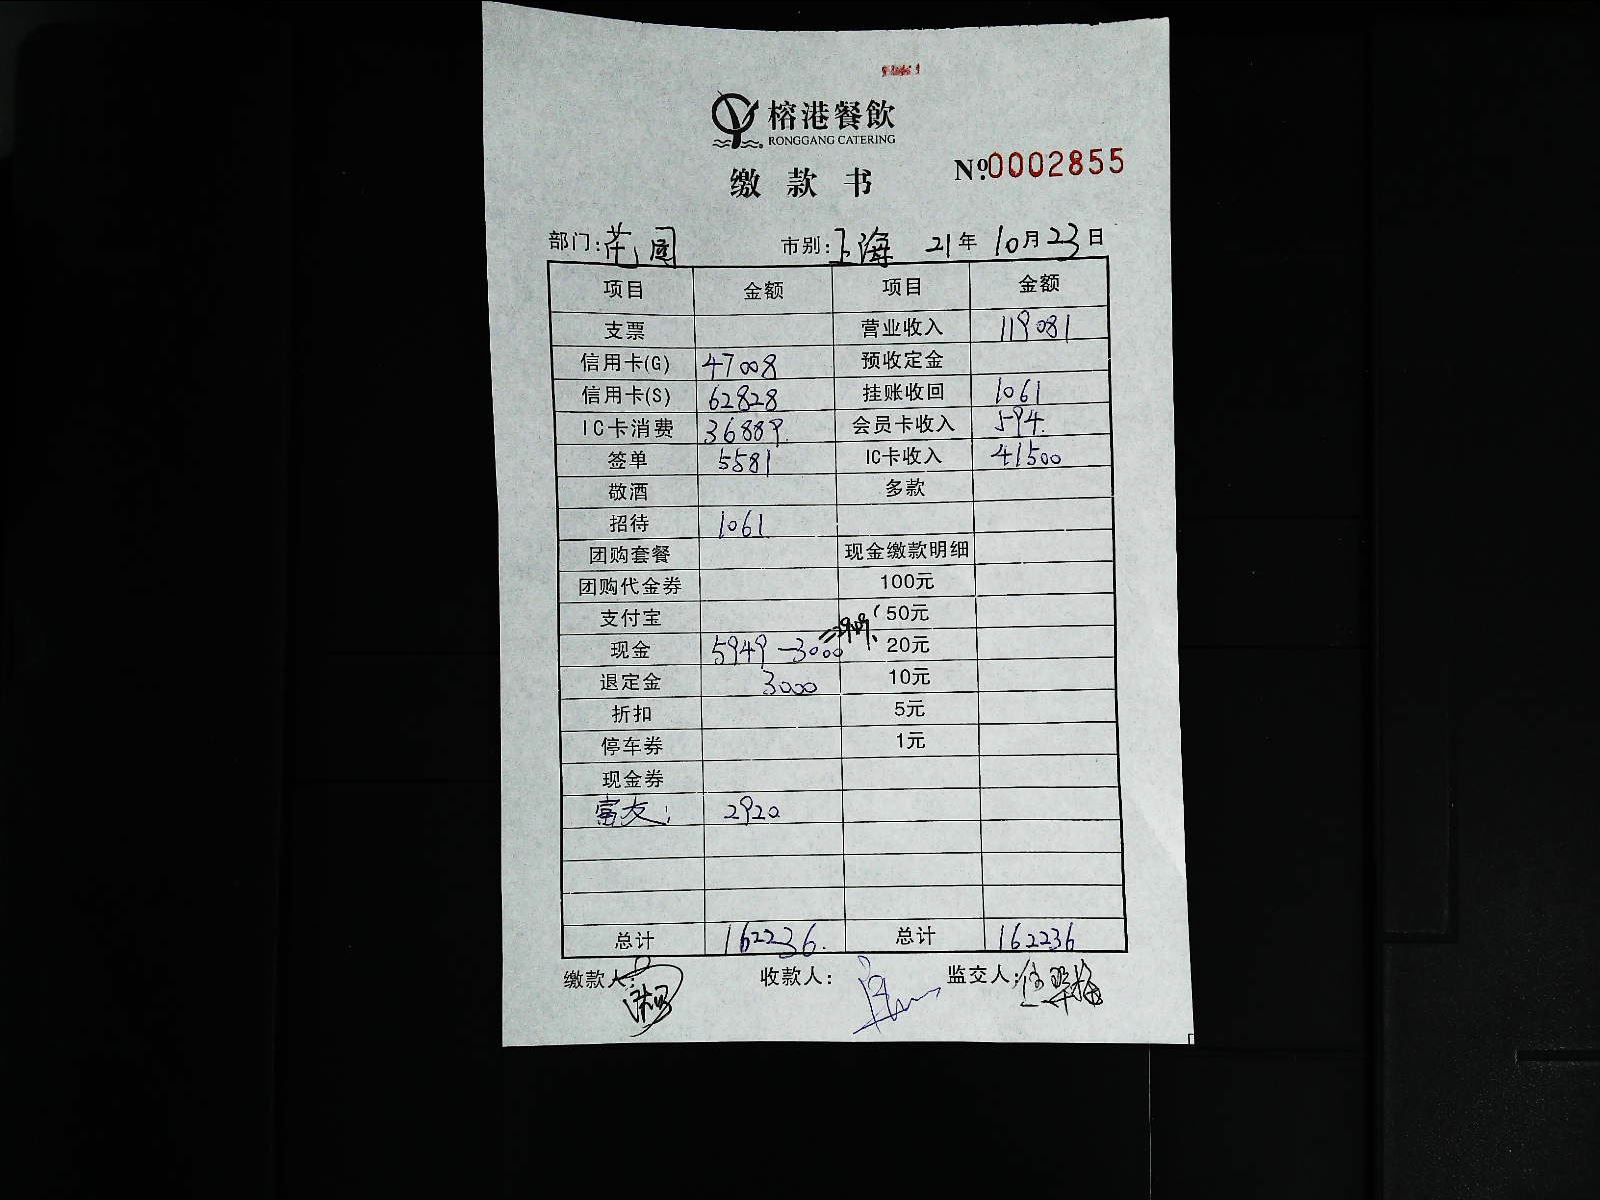 榕港餐飲
RONGGANG CATERING
缴款书
Nº.0002855
部门:花园 市别:上海 21年10月23日
项目 金额 项目 金额
支票 营业收入 119081
信用卡(G) 47008 预收定金
信用卡(S) 62828 挂账收回 1061
IC卡消费 36889. 会员卡收入 594.
签单 5581 IC卡收入 41500
敬酒 多款
招待 1061
团购套餐 现金缴款明细
团购代金券 100元
支付宝 50元
现金 5949-3000=2949. 20元
退定金 3000 10元
折扣 5元
停车券 1元
现金券
富友: 2920
总计 162236. 总计 162236
缴款人: 收款人: 监交人: